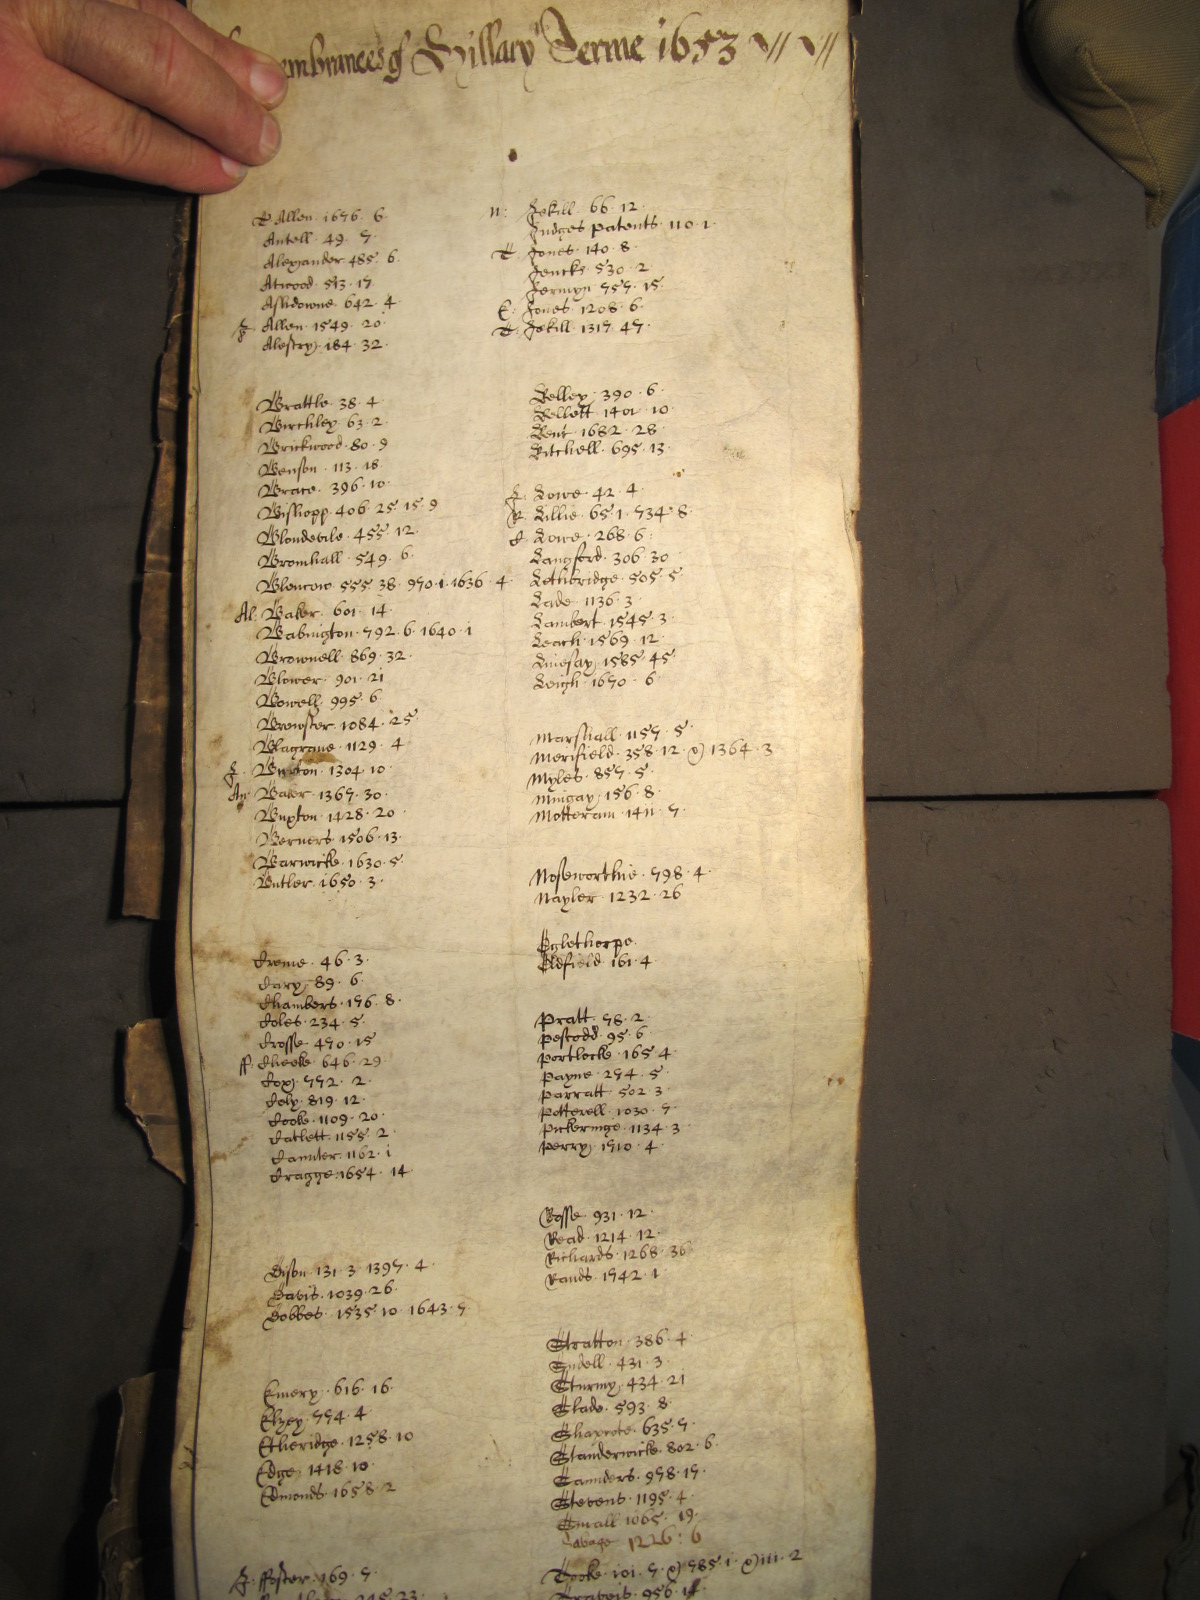 embrances of Hillary Terme 1653
T Allen 1676 6
Antell 49 7
Alexander 485 6
Atwood 513 17
Ashdowne 642 4
J: Allen 1549 20
Alestry 184 32
Brattle 38 4
Birchley 63 2
Brickwood 80 9
Benson 113 18
Brace 396 10
Bishopp 406 25 15 9
Blondevile 455 12
Bromhall 549 6
Blencow 555 38 970 1 1636 4
Al: Baker 601 14
Babington 792 6 1640 1
Brownell 869 32
Blower 901 21
Bowell 995 6
Brewster 1084 25
Blagrave 1129 4
J: Burton 1304 10
An: Baker 1367 30
Buxton 1428 20
Berners 1506 13
Barwicke 1630 5
Butler 1650 3
Creme 46 3
Cary 89 6
Chambers 176 8
Coles 234 5
Crosse 470 15
ff: Cheeke 646 29
Cox 772 2
Coly 819 12
Cooke 1109 20
Catlett 1155 2
Caunter 1162 1
Cragge 1654 14
Dison 131 3 1397 4
Davis 1039 26
Dobbes 1535 10 1643 7
Emery 616 16
Elzey 774 4
Etheridge 1258 10
Edge 1418 10
Edmonds 1658 2
J: ffoster 169 7
n: Jekill 66 12
Judges Patents 110 1
T: Jones 140 8
Jencks 530 2
Jermyn 757 15
E: Jones 1208 6
T: Jekill 1317 47
Kelley 390 6
Kellett 1401 10
Kent 1682 28
Kitchell 695 13
J: Lowe 42 4
R: Lillie 65 1 734 8
C: Lowe 268 6
Langford 306 30
Lethbridge 505 5
Lade 1136 3
Lambert 1545 3
Leach 1569 12
Linesay 1585 45
Leigh 1670 6
Marshall 1157 5
Merifield 358 12 & 1364 3
Myles 857 5
Mingay 156 8
Motteram 1411 7
Noseworthie 798 4
Nayler 1232 26
Oglethorpe
Oldfield 161 4
Pratt 78 2
Pescodd 95 6
Portlocke 165 4
Payne 274 5
Parratt 502 3
Potterell 1030 7
Pickeringe 1134 3
Perry 1710 4
Rosse 931 12
Read 1214 12
Richards 1268 36
Rands 1742 1
Stratton 386 4
Sydell 431 3
Sturmy 434 21
Slade 593 8
Shaxcote 635 7
Standerwicke 802 6
Saunders 978 17
Stevens 1195 4
Small 1065 19
Savage 1226 6
Tooke 101 7 & 785 1 & 111 2
Travis 956 14